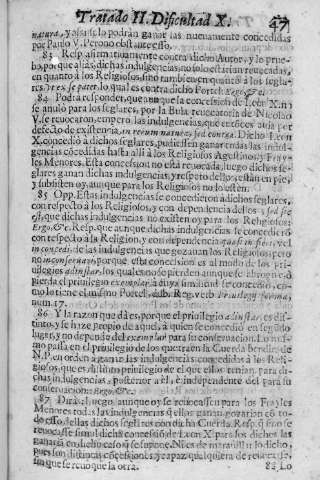 Tratado II. Dificultad X. 47
natura, y assi se lo podrán ganar las nuevamente concedidas
por Paulo V. Pero no obstante esso.
83 Resp. afirmativamente contra dicho Autor, y lo prue-
bo, porque à las dichas indulgencias, no solo estarian revocadas,
en quanto à los Religiosos, sino tambien en quanto à los segla-
res
84 Podrà responder, que aunque la concession de Leon X.
se anulò por à seglares, por la Bula revocatoria de Nicolao
V. se revocaron, empero las indulgencias, que
defecto de existencia, in rerum natura, sed contra. Dicho Leon
X. concediò à dichos seglares, pudiessen ganar todas las ind-
gencias cõcedidas hasta allì à los Religiosos Agustinos, y Frayles
Menores. Esta concession no està revocada, luego dichos se-
glares ganan dichas indulgencias, y respeto dello, estàn en pie,
y subsisten oy, aunque para los Religiosos no lo estèn.
85 Opp. Estas indulgencias se concedieron à dichos seglares,
con respecto à los Religiosos, y con dependencia dellos, sed sic
est, que dichas indulgencias no existen oy, para los Religiosos:
Ergo, &c. Resp. que aunque dichas indulgencias se concediero
con respecto à la Religion, y con dependencia quasi in fieri, vel
in concedi, de las indulgencias que gozavan los Religiosos; pero
no in conservari; porque esta concession es al modo de los pri-
vilegios ad instar, los quales no se pierden aunque se abrogue, ò
pierda el privilegio exemplar à cuya similitud se concediò, co-
mo lo tiene el mismo Portel, dub. Reg. verb. Privilegij forma,
num. 17.
86 Y la razon que dà es, porque el privilegio ad instar, es dis-
tinto, y se haze propio de aquel, à quien se concediò en segũdo
lugar, y no depende del exemplar para su conservacion. Lo mis-
mo passa en el privilegio de los que traen la Cuerda bendita de
N. P. en orden à ganar las indulgencias concedidas à los Reli-
giosos, que es distinto privilegio de el que ellos tenian, para di-
chas indulgencias, posterior à èl, è independente del para su
conservacion: Ergo, &c.
87 Dirà: luego, aunque oy se revocassen para los Frayles
Menores todas las indulgencias q̃ ellos ganan, gozaran cõ to-
do esso, dellas dichos seglares con dicha Cuerda. Resp. q̃ si no se
revocasse simul dicha concessiõ de Leon X. para los dichos las
ganarà en dicho caso q̃ se supone. Ni es de maravillar lo dicho,
pues son distintas cõcessiones, y capaz qualquiera de revocarse,
sin que se revoque la otra. 88 Lo